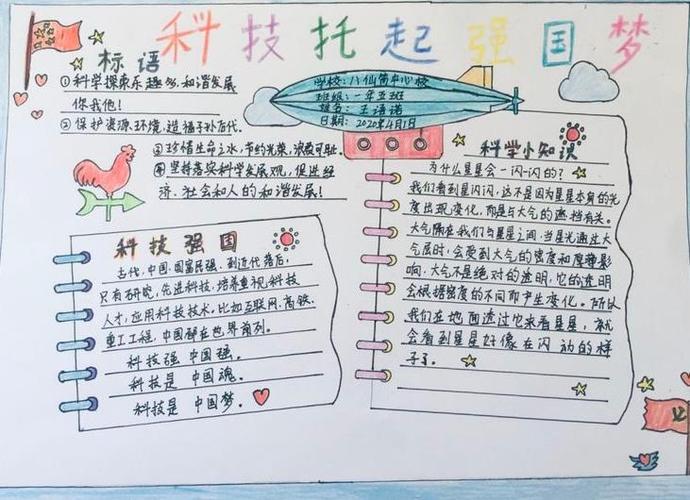 科技托起强国梦
标语
①科学探索乐趣多,和谐发展
你我他!
②保护资源环境,造福子孙后代。
③珍惜生命之水,节约光荣,浪费可耻。
④坚持落实科学发展观,促进经
济、社会和人的和谐发展!
学校:八仙筒中心校
班级:一年五班
姓名:王语诺
日期:2020年4月1日
科技强国
古代,中国,国富民强,到近代落后,
只有研究,先进科技,培养重视,科技
人才,应用科技技术。比如互联网,高铁,
重工工程,中国都在世界前列。
科技强 中国强。
科技是 中国魂。
科技是 中国梦。
科学小知识
为什么星星会一闪一闪的?
我们看到星闪闪,这不是因为星星本身的光
度出现变化,而是与大气的遮挡有关。
大气隔在我们与星星之间,当星光通过大
气层时,会受到大气的密度和厚薄影
响,大气不是绝对的透明,它的透明
会根据密度的不同而产生变化。所以
我们在地面透过它来看星星,就
会看到星星好像在闪动的样
子了。